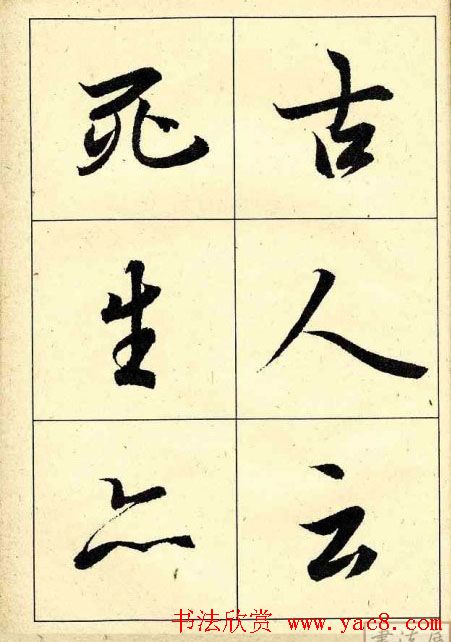 古人云
死生亦
书法欣赏 www.yac8.com